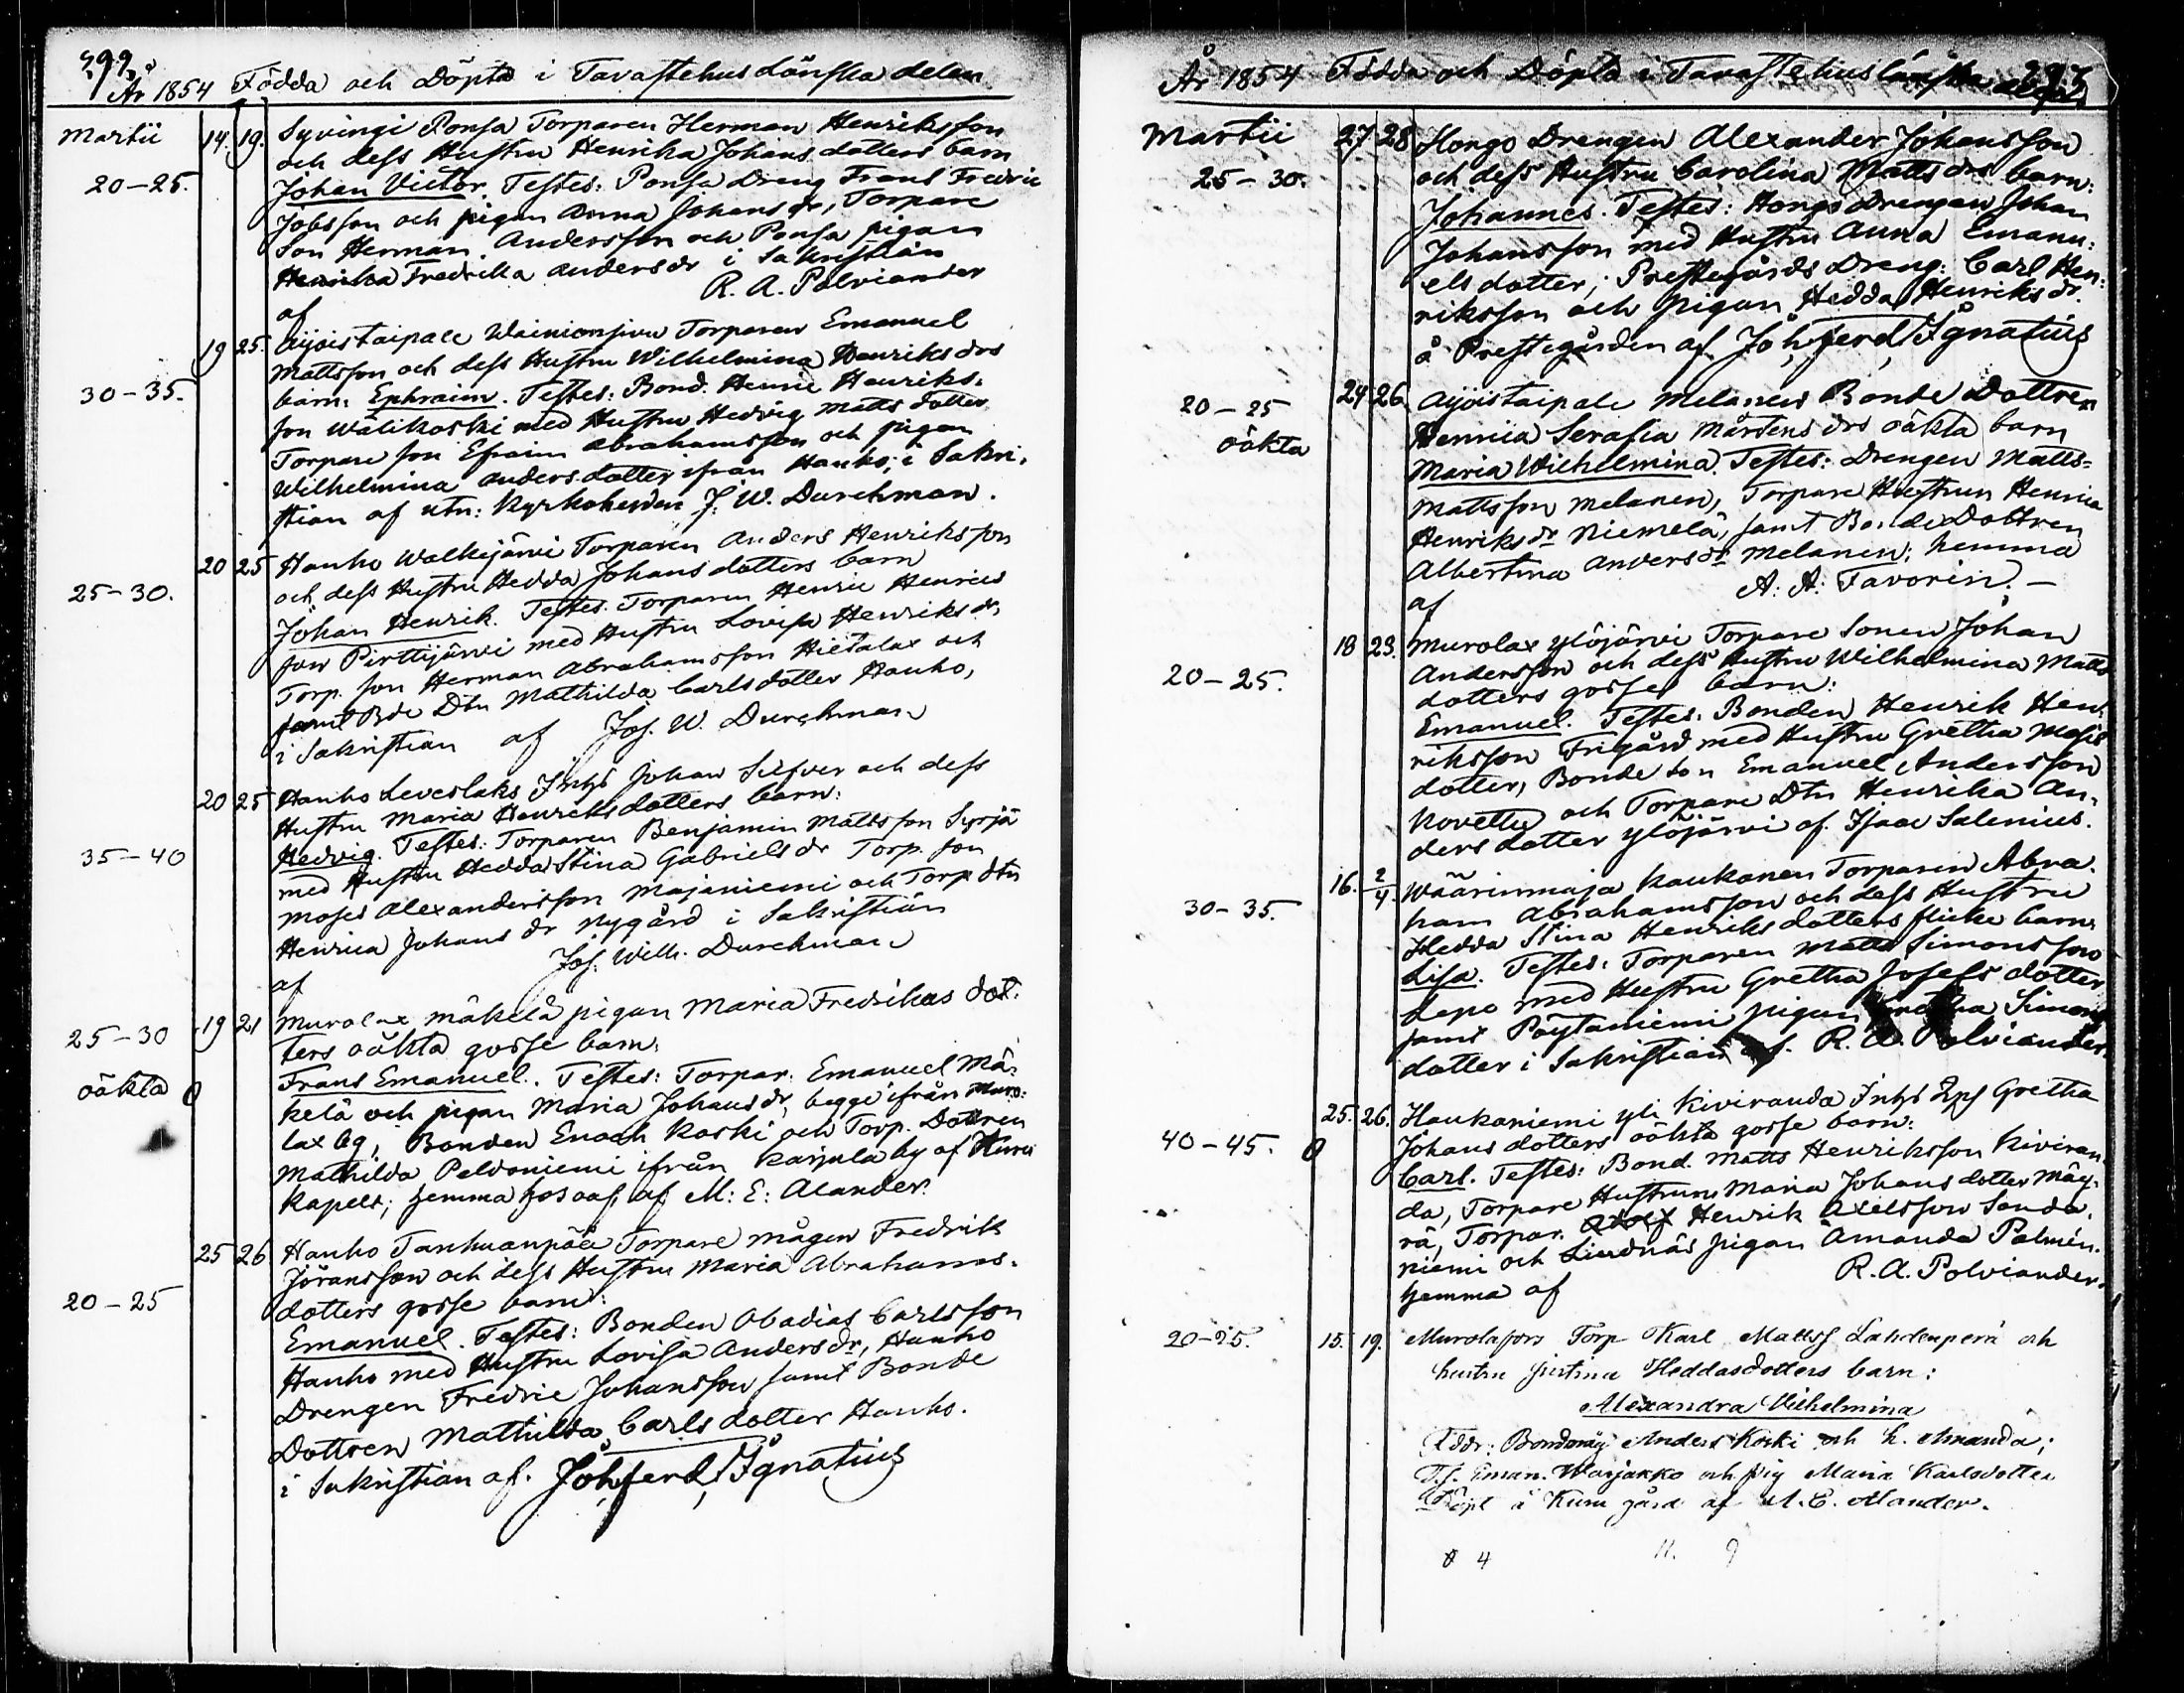 År 1854 Födda och Döpta i Tavastehus länska delen
Martii 14. 19. Syvingi Ponsa Torparen Herman Henriksson
och dess Hustru Henrika Johans dotters barn
20-25. Johan Victor. Testes: Ponsa Dreng Frans Fredric
Jobsson och pigan Anna Johans dr, Torpare
Son Herman Andersson och Ponsa pigan
Henrika Fredrika Anders dr i Sakristian
af R. A. Polviander
19 25. Äijöistaipale Torparen Emanuel
Mattsson och dess Hustru Wilhelmina Henriks drs
30-35. barn: Ephraim. Testes: Bond. Henric Henriks-
son Wälikoski med Hustru Hedvig Matts dotter
Torpare son Efraim Abrahamsson och pigan
Wilhelmina Anders dotter ifrån Hanho; i Sakri-
stian af utn: Kyrkoherden J. W. Durchman.
20 25 Hanho Walkejärvi Torparen Anders Henriksson
25-30. och dess Hustru Hedda Johans dotters barn
Johan Henrik. Testes. Torparen Henric Henrics
son Pirttijärvi med Hustru Lovisa Henriks dr,
Torp. son Herman Abrahamsson Hietalax och
samt Bde Dtn Mathilda Carls dotter Hanho,
i Sakristian af Jos. W. Durchman
20 25 Hanho Leveslaks Inhs Johan Silfver och dess
Hustru Maria Henriks dotters barn:
35-40 Hedvig. Testes: Torparen Benjamin Mattsson Syrjä
med Hustru Hedda Stina Gabriels dr Torp. son
Moses Alexandersson Majaniemi och Torp dtn
Henrica Johans dr Nygård i Sakristian
af Jos. Wilh. Durchman
25-30 19 21 Murolax Mäkelä pigan Maria Fredrikas dot-
ters oäkta gosse barn.
oäkta Frans Emanuel. Testes: Torpar. Emanuel Mä-
kelä och pigan Maria Johans dr, begge ifrån Muro-
lax by, Bonden Enoch Koski och Torp. Dottren
Mathilda Peldoniemi ifrån Karjula by af Kuru
Kapell; hemma hos af M: E: Alander.
25 26 Hanho Tanhuanpää Torpare mågen Fredrik
Jöransson och dess Hustru Maria Abrahams-
20-25 dotters gosse barn:
Emanuel. Testes: Bonden Abadias Carlsson
Hanho med Hustru Lovisa Anders dr, Hanho
Drengen Fredric Johansson samt Bonde
Dottren Mathilda Carls dotter Hanho.
i Sakristian af. Joh. Ferd. Ignatius
År 1854 Födda och Döpta i Tavastehus länska
Martii 27. 28 Hongo Drengen Alexander Johansson
25-30. och dess Hustru Carolina Matts drs barn:
Johannes. Testes: Hongo Drengen Johan
Johansson med Hustru Anna Emanu-
els dotter; Prestegårds Dreng: Carl Hen-
riksson och pigan Hedda Henriks dr.
å Prestegården af Joh. Ferd. Ignatius
20-25 24 26. Äijöistaipale Melanen Bonde Dottren
oäkta Henrica Serafia Mårtens drs oäkta barn
Maria Wilhelmina. Testes: Drengen Matts
Mattsson Melanen, Torpare Hustrun Henrica
Henriks dr Niemelä, samt Bonde Dottren
Albertina Anders dr Melanen; hemma
af A. A. Favorin. -
18 23. Murolax Ylöjärvi Torpare Sonen Johan
20-25. Andersson och dess Hustru Wilhelmina Matts
dotters gosse barn:
Emanuel. Testes: Bonden Henrik Hen-
riksson Frigård med Hustru Gretha Moses
dotter, Bonde Son Emanuel Andersson
Kovettu och Torpare Dtn Henrika An-
ders dotter Ylöjärvi af Isaac Salenius.
30-35. 16. 2/4. Wäärinmaja Kaukanen Torparen Abra-
ham Abrahamsson och dess Hustru
Hedda Stina Henriks dotters flicke barn
Lisa. Testes: Torparen Matts Simonsson
Lepo med Hustru Gretha Josefs dotter
samt Pöytäniemi pigan Simons
dotter i Sakristian af. R. A. Polviander
25. 26. Haukaniemi yli Kiviranda Inhs Gretha
40-45. Johans dotters oäkta gosse barn:
Carl. Testes: Bond. Matts Henriksson Kiviran-
da, Torpare Hustrun Maria Johans dotter Mäy-
rä, Torpar. Henrik Axelsson Sanda-
niemi och Lindnäs pigan Amanda Palmén.
hemma af R. A. Polviander
20-25. 15. 19. Murolafors Torp Karl Mattss Lahdenperä och
hustru Justina Heddasdotters barn:
Alexandra Vilhelmina
Fddr: Bondemåg Anders Koski och h. Amanda;
T.s. Eman. Warjakko och pig Maria Karlsdotter
Döpt å Kuru gård af M. E. Alander.
4 11. 9